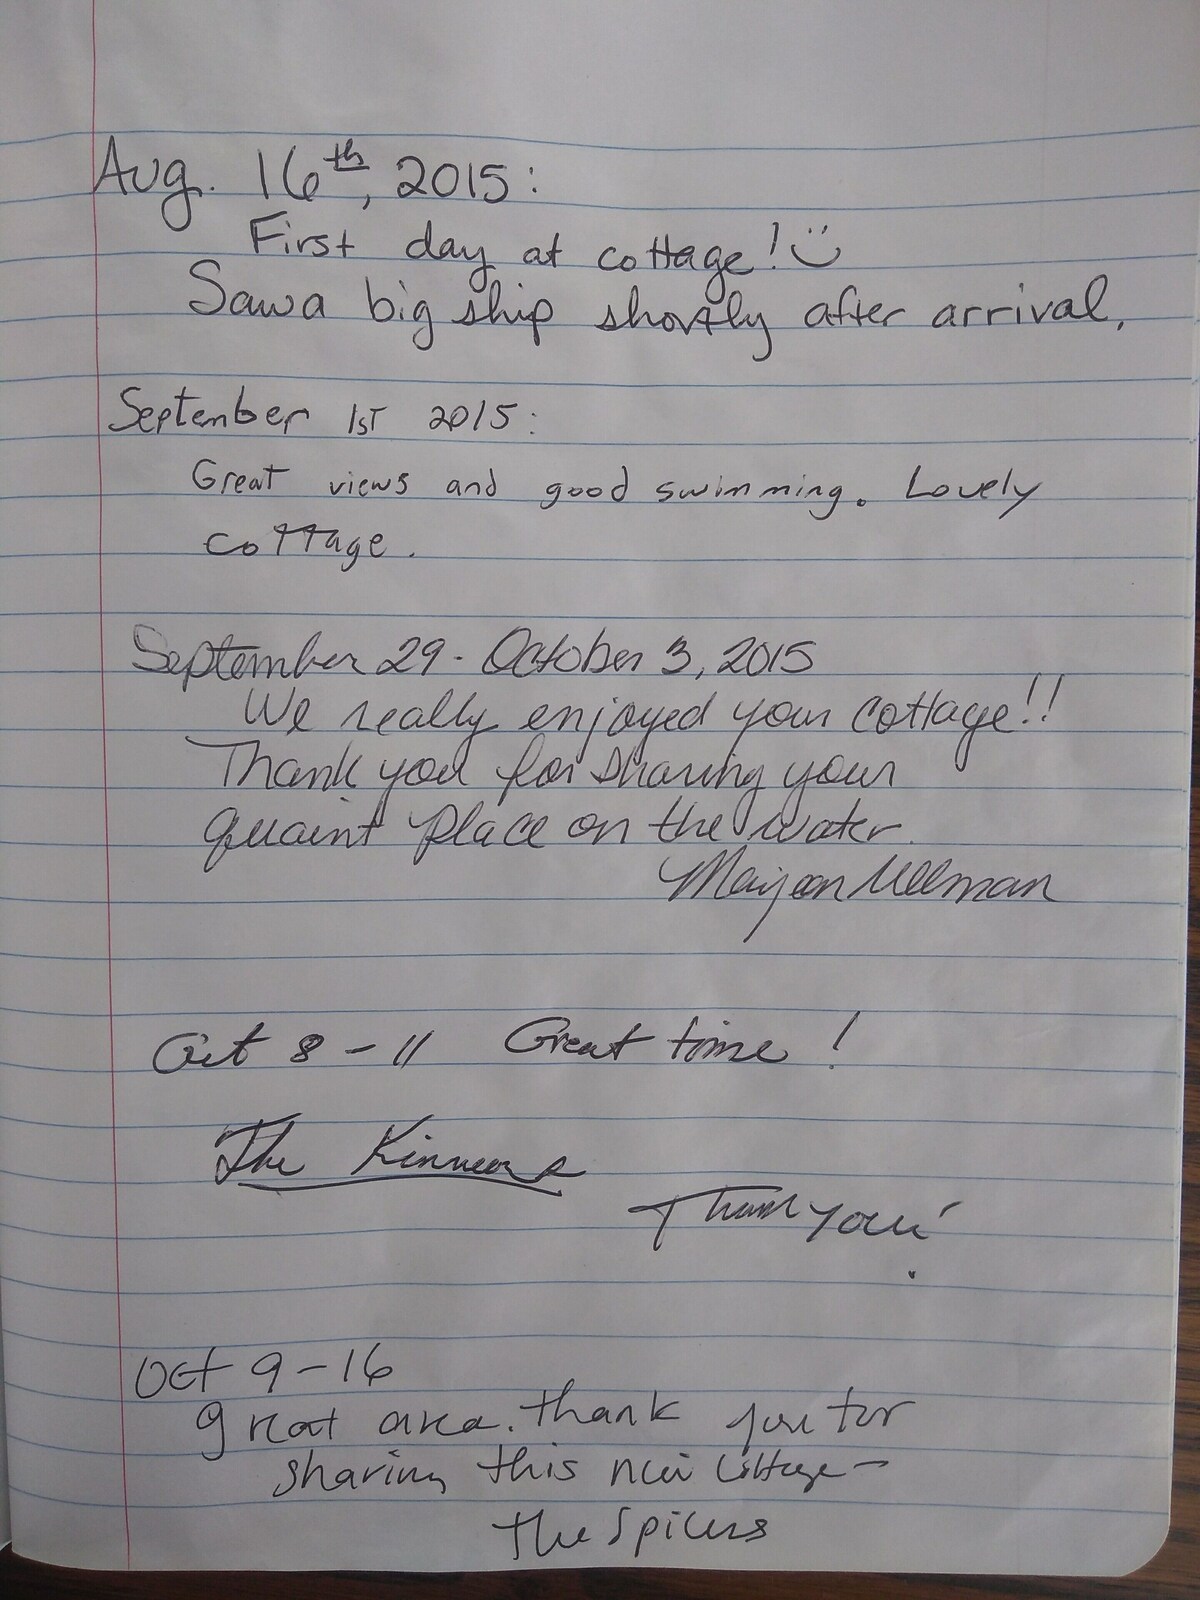 Aug. 16th, 2015:
First day at cottage!
Saw a big ship shortly after arrival.
September 1ST 2015:
Great views and good swimming. Lovely
cottage.
September 29 - October 3, 2015
We really enjoyed your cottage!!
Thank you for sharing your
quaint place on the water.
Ullman
Oct 8 - 11 Great time!
The
Thank you!
Oct 9-16
great area. thank you for
sharing this cottage -
the Spicers